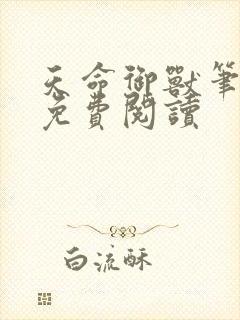 天命御獸筆
免費閱讀
白流酥